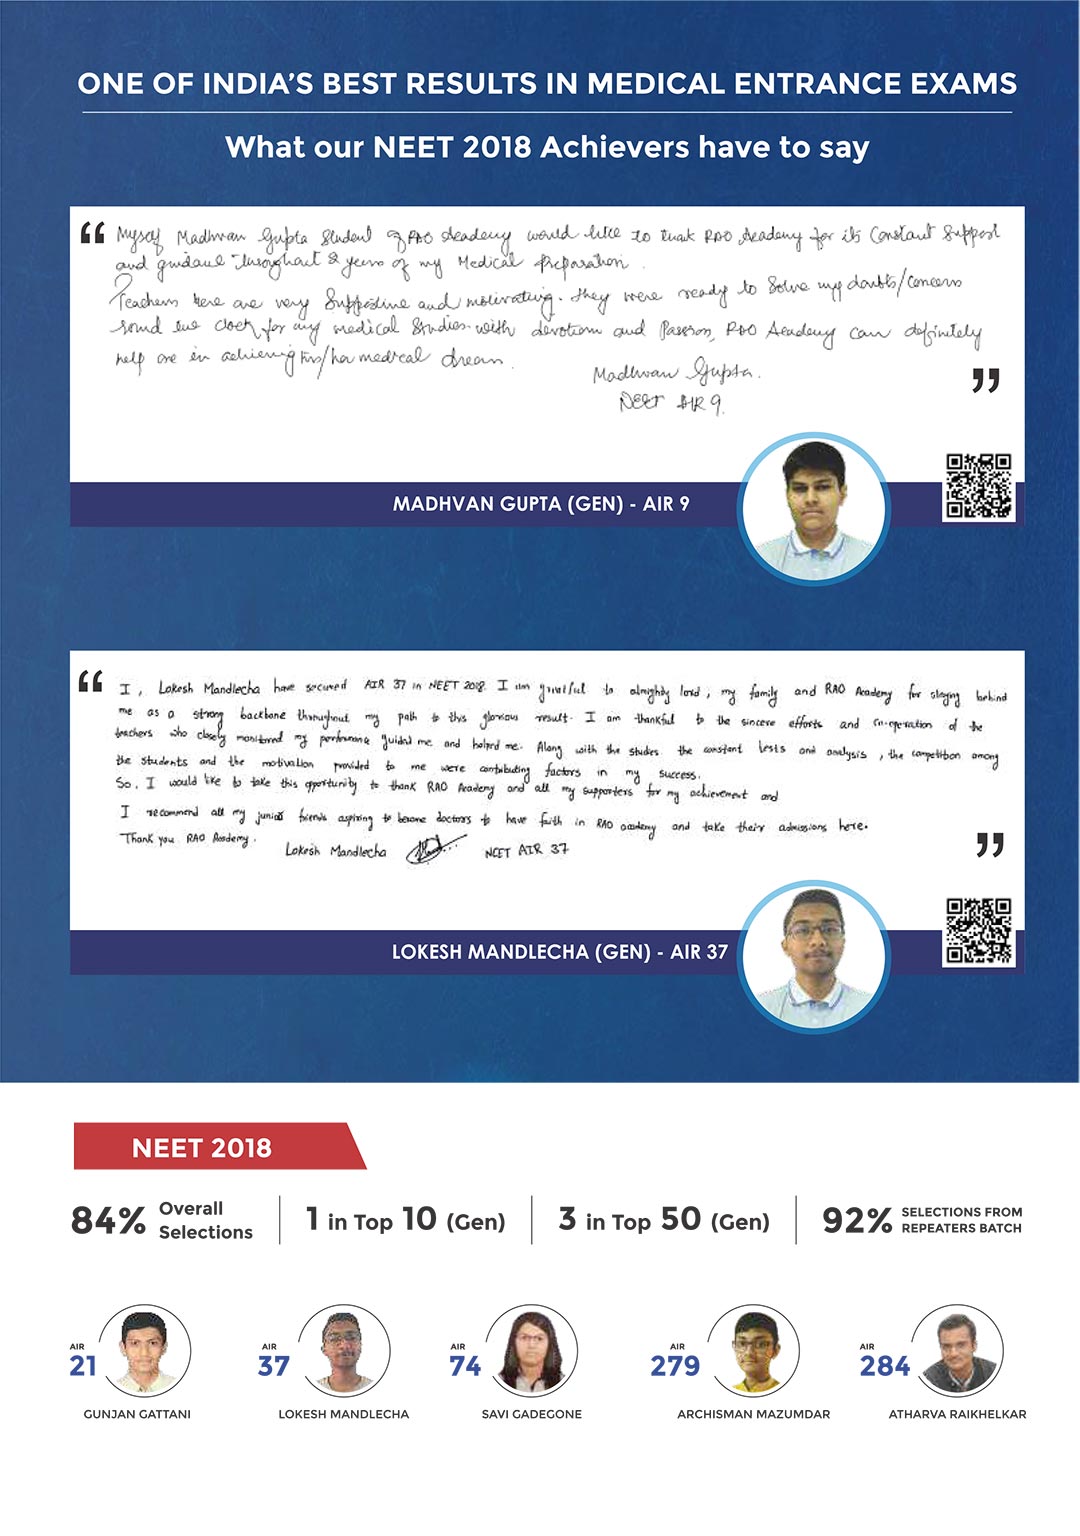 ONE OF INDIA'S BEST RESULTS IN MEDICAL ENTRANCE EXAMS
What our NEET 2018 Achievers have to say
“ Myself Madhvan Gupta Student of RAO Academy would like to thank RAO Academy for its Constant Support
and guidance throughout 2 years of my Medical Preparation.
Teachers here are very Supportive and motivating. They were ready to Solve my doubts/concerns
round the clock for my medical Studies. with devotion and Passion, RAO Academy can definitely
help one in achieving his/her medical dream.
Madhvan Gupta.
NEET AIR 9. ”
MADHVAN GUPTA (GEN) - AIR 9
“ I, Lokesh Mandlecha have secured AIR 37 in NEET 2018. I am grateful to almighty lord, my family and RAO Academy for staying behind
me as a strong backbone throughout my path to this glorious result. I am thankful to the sincere efforts and co-operation of the
teachers who closely monitored my performance guided me and helped me. Along with the studies the constant tests and analysis, the competition among
the students and the motivation provided to me were contributing factors in my success.
So, I would like to take this opportunity to thank RAO Academy and all my supporters for my achievement and
I recommend all my junior friends aspiring to become doctors to have faith in RAO academy and take their admissions here.
Thank you RAO Academy.
Lokesh Mandlecha NEET AIR 37 ”
LOKESH MANDLECHA (GEN) - AIR 37
NEET 2018
84% Overall Selections
1 in Top 10 (Gen)
3 in Top 50 (Gen)
92% SELECTIONS FROM REPEATERS BATCH
AIR 21
GUNJAN GATTANI
AIR 37
LOKESH MANDLECHA
AIR 74
SAVI GADEGONE
AIR 279
ARCHISMAN MAZUMDAR
AIR 284
ATHARVA RAIKHELKAR